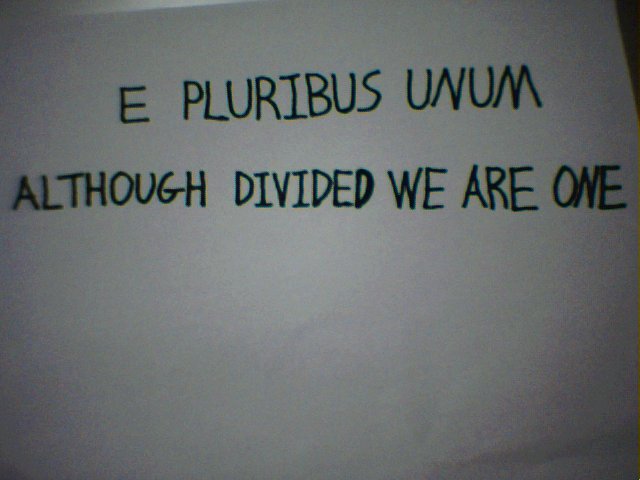 E PLURIBUS UNUM
ALTHOUGH DIVIDED WE ARE ONE